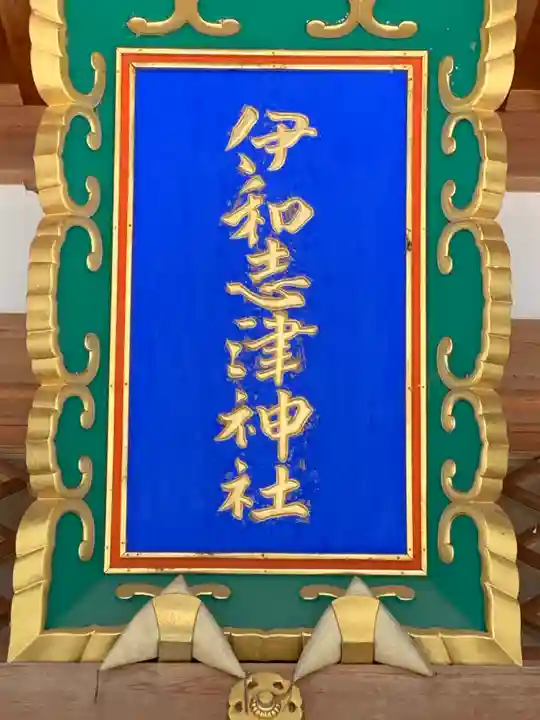 伊和志津神社